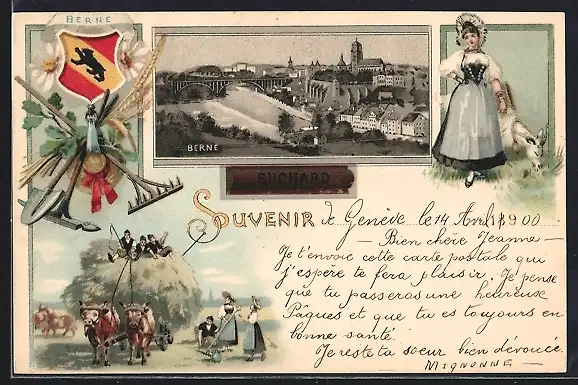 BERNE
BERNE
SUCHARD
SOUVENIR de Genève le 14 Avril 1900
— Bien chère Jeanne —
Je t'envoie cette carte postale qui
j'espère te fera plaisir. Je pense
que tu passeras une heureuse
Pâques et que tu es toujours en
bonne santé.
Je reste ta soeur bien dévouée.
MIGNONNE —